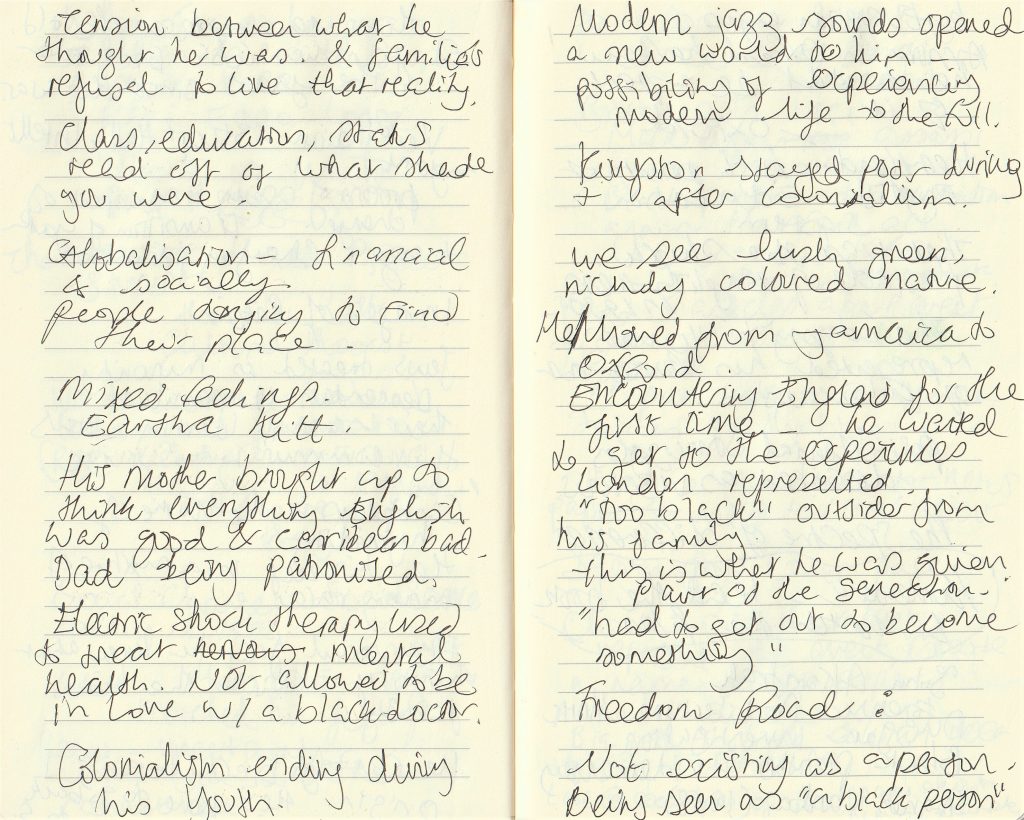 Tension between what he
thought he was. & families
refusel to live that reality.
Class, education, states
read off of what shade
you were.
Globalisation - financial
& socially.
people denying to Find
their place.
Mixed feelings
Eartha Kitt.
His mother brought up to
think everything English
was good & carribean bad.
Dad being patronised.
Electric shock therapy used
to treat nervous mental
health. Not allowed to be
in love w/ a black doctor.
Colonialism ending during
his Youth
Modern jazz sounds opened
a new world to him -
possibility of experiencing
modern life to the full.
Kingston stayed poor during
+ after colonialism.
we see lush green,
richly coloured nature.
Moved from Jamaica to
Oxford
Encountering England for the
first time - he wanted
to get to the experinces
London represented.
"Too black" outsider from
his family.
this is what he was given.
Part of the Generation.
"had to get out to become
something"
Freedom Road :
Not existing as a person.
Being seen as "a black person"